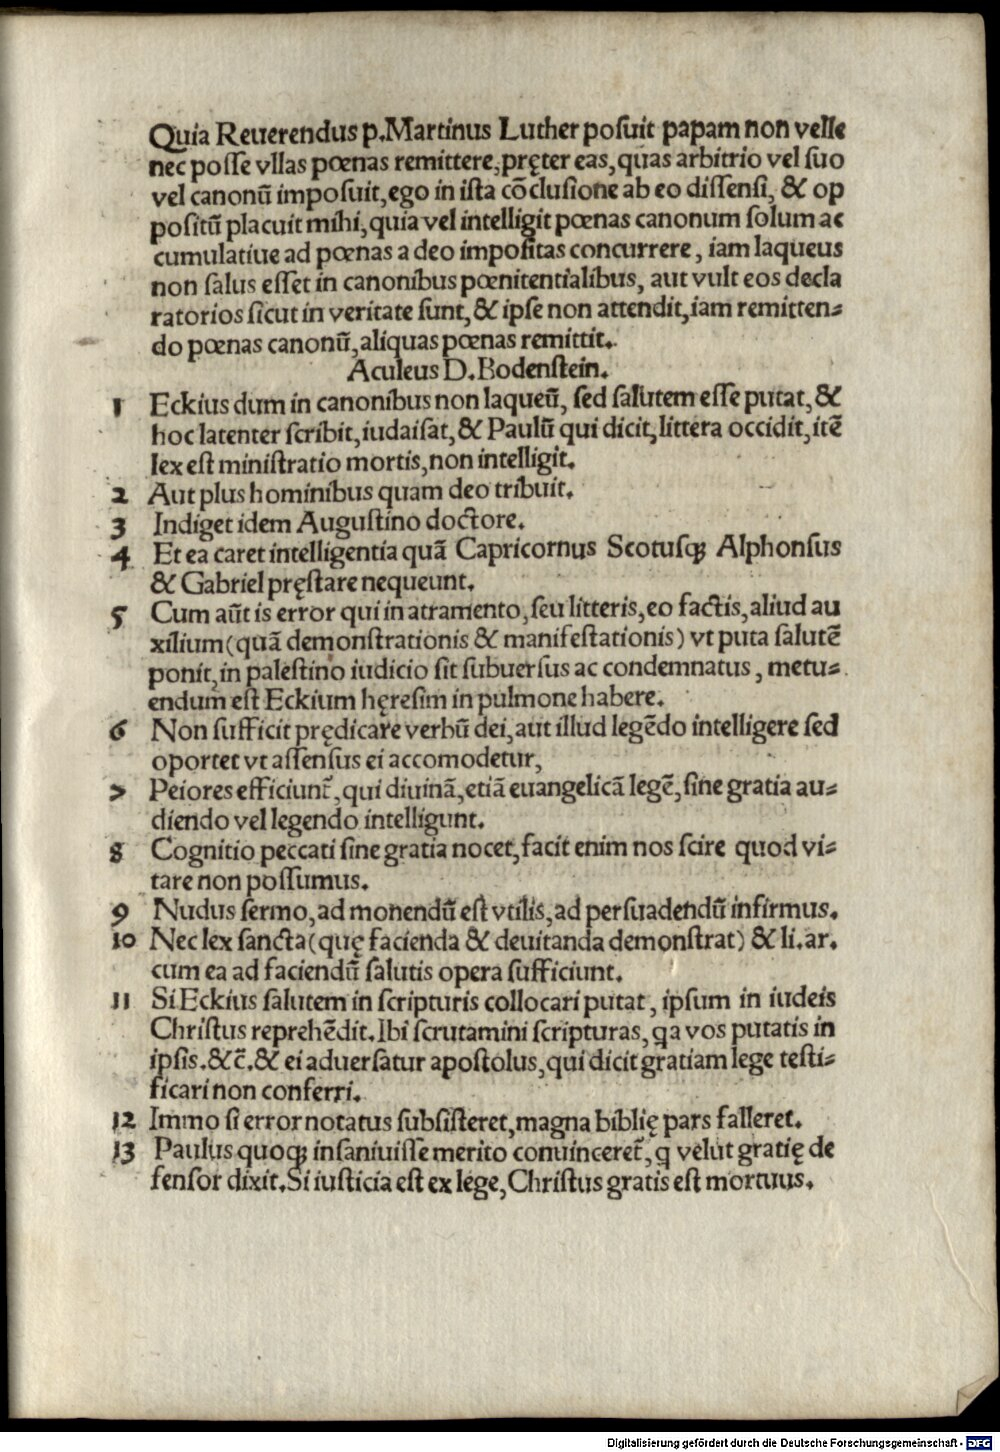 Quia Reuerendus p.Martinus Luther posuit papam non velle
nec posse vllas pœnas remittere, pręter eas, quas arbitrio vel suo
vel canonũ imposuit, ego in ista cõclusione ab eo dissensi, & op
positũ placuit mihi, quia vel intelligit pœnas canonum solum ac
cumulatiue ad pœnas a deo impositas concurrere, iam laqueus
non salus esset in canonibus pœnitentialibus, aut vult eos decla
ratorios sicut in veritate sunt, & ipse non attendit, iam remitten=
do pœnas canonũ, aliquas pœnas remittit.
Aculeus D.Bodenstein.
1 Eckius dum in canonibus non laqueũ, sed salutem esse putat, &
hoc latenter scribit, iudaisat, & Paulũ qui dicit, littera occidit, itẽ
lex est ministratio mortis, non intelligit.
2 Aut plus hominibus quam deo tribuit.
3 Indiget idem Augustino doctore.
4 Et ea caret intelligentia quã Capricornus Scotusqꝫ Alphonsus
& Gabriel pręstare nequeunt.
5 Cum aũt is error qui in atramento, seu litteris, eo factis, aliud au
xilium (quã demonstrationis & manifestationis) vt puta salutẽ
ponit, in palestino iudicio sit subuersus ac condemnatus, metu=
endum est Eckium hęresim in pulmone habere.
6 Non sufficit prędicare verbũ dei, aut illud legẽdo intelligere sed
oportet vt assensus ei accomodetur,
7 Peiores efficiunt̃, qui diuinã, etiã euangelicã legẽ, sine gratia au=
diendo vel legendo intelligunt.
8 Cognitio peccati sine gratia nocet, facit enim nos scire quod vi=
tare non possumus.
9 Nudus sermo, ad monendũ est vtilis, ad persuadendũ infirmus.
10 Nec lex sancta (quę facienda & deuitanda demonstrat) & li. ar.
cum ea ad faciendũ salutis opera sufficiunt.
11 Si Eckius salutem in scripturis collocari putat, ipsum in iudeis
Christus reprehẽdit. Ibi scrutamini scripturas, qa vos putatis in
ipsis. &c̃. & ei aduersatur apostolus, qui dicit gratiam lege testi=
ficari non conferri.
12 Immo si error notatus subsisteret, magna biblię pars falleret.
13 Paulus quoqꝫ insaniuisse merito conuinceret̃, q velut gratię de
fensor dixit. Si iusticia est ex lege, Christus gratis est mortuus.
Digitalisierung gefördert durch die Deutsche Forschungsgemeinschaft - DFG